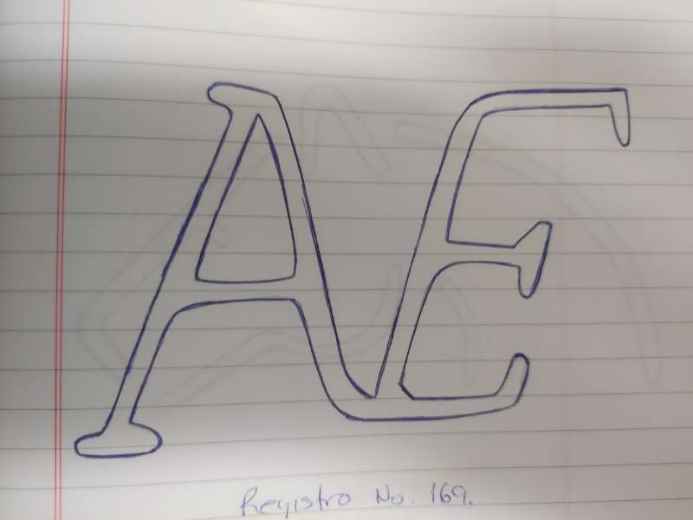 AE
Registro No. 169.